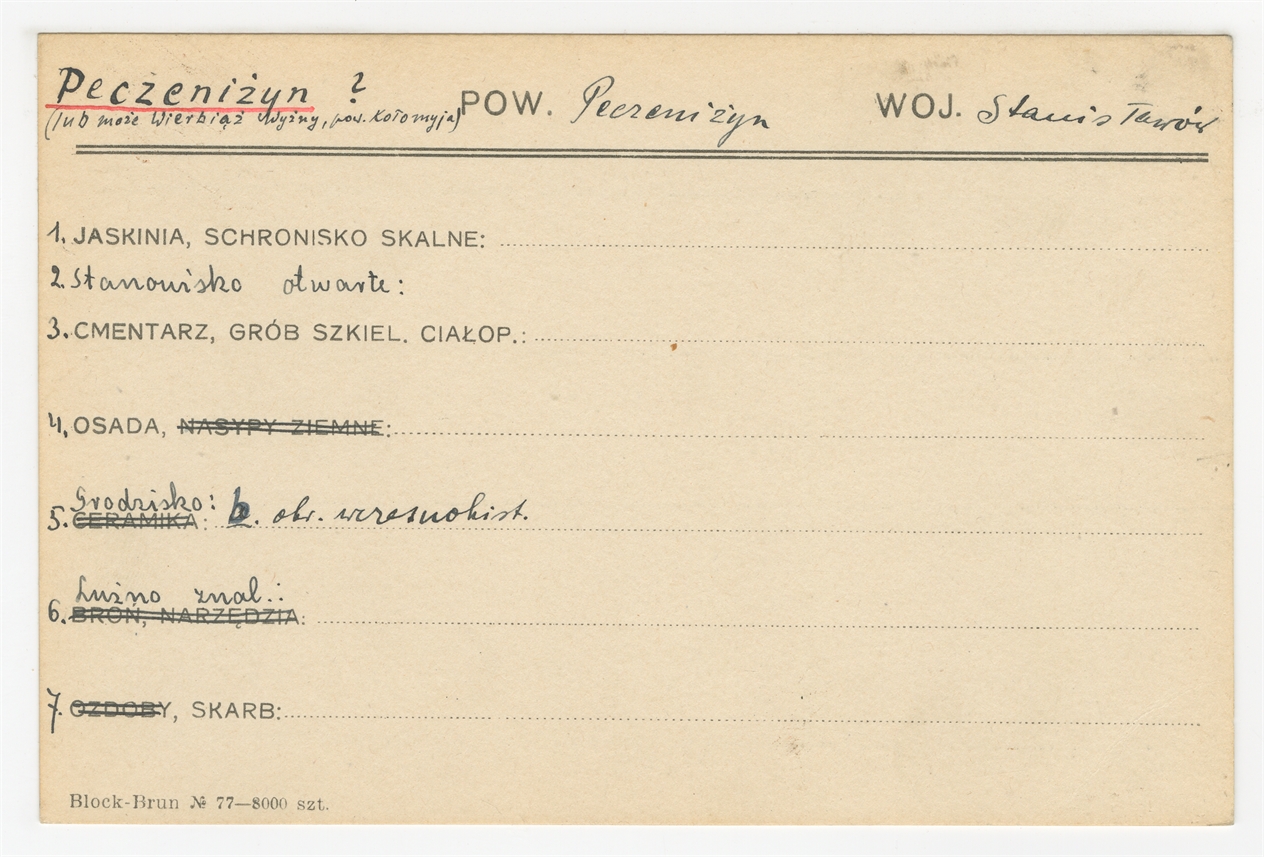 Peczeniżyn ? POW. Peczeniżyn WOJ. Stanisławów
(lub może Wierbiąż Wyżny, pow. Kołomyja)
1. JASKINIA, SCHRONISKO SKALNE:
2. Stanowisko otwarte:
3. CMENTARZ, GRÓB SZKIEL. CIAŁOP.:
4. OSADA, NASYPY ZIEMNE:
Grodzisko:
5. CERAMIKA: b. obr. wczesnohist.
Luźno znal.:
6. BROŃ, NARZĘDZIA:
7. OZDOBY, SKARB:
Block-Brun № 77—8000 szt.